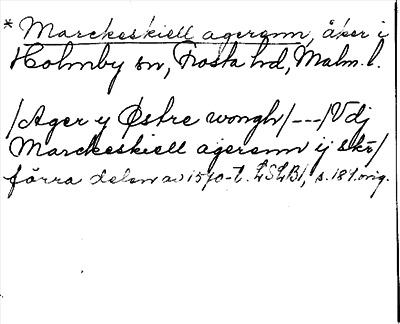 * Marckeskiell agerenn, åker i
Holmby sn, Frosta hd, Malm. l.
/Ager y Østre wongh/---/Vdj
Marckeskiell agerenn ij skr/
förra delen av 1570-t. LSLB1, s. 181. orig.